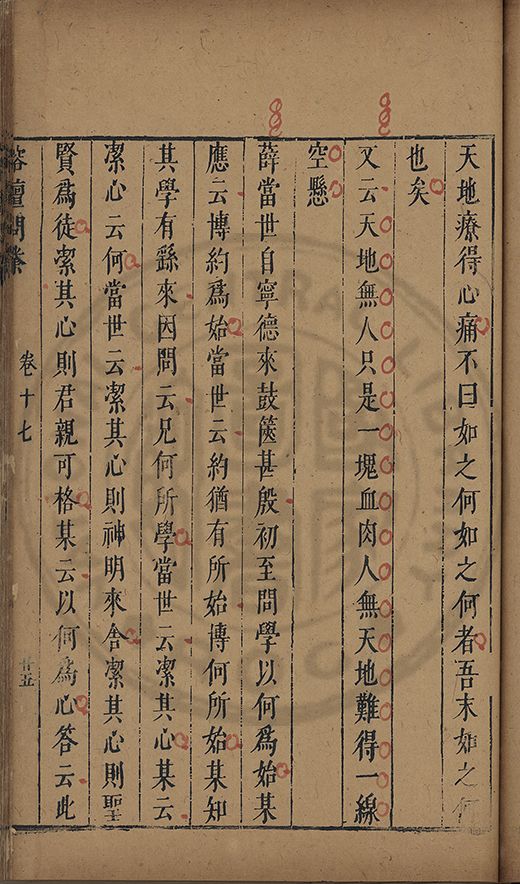 天地療得心痛不曰如之何如之何者吾末如之何
也矣
又云天地無人只是一塊血肉人無天地難得一線
空懸
薛當世自寧德來鼓篋甚殷初至問學以何為始某
應云博約為始當世云約猶有所始博何所始某知
其學有繇來因問云兄何所學當世云潔其心某云
潔心云何當世云潔其心則神明來舍潔其心則聖
賢為徒潔其心則君親可格某云以何為心答云此
榕壇問業
卷十七
廿五